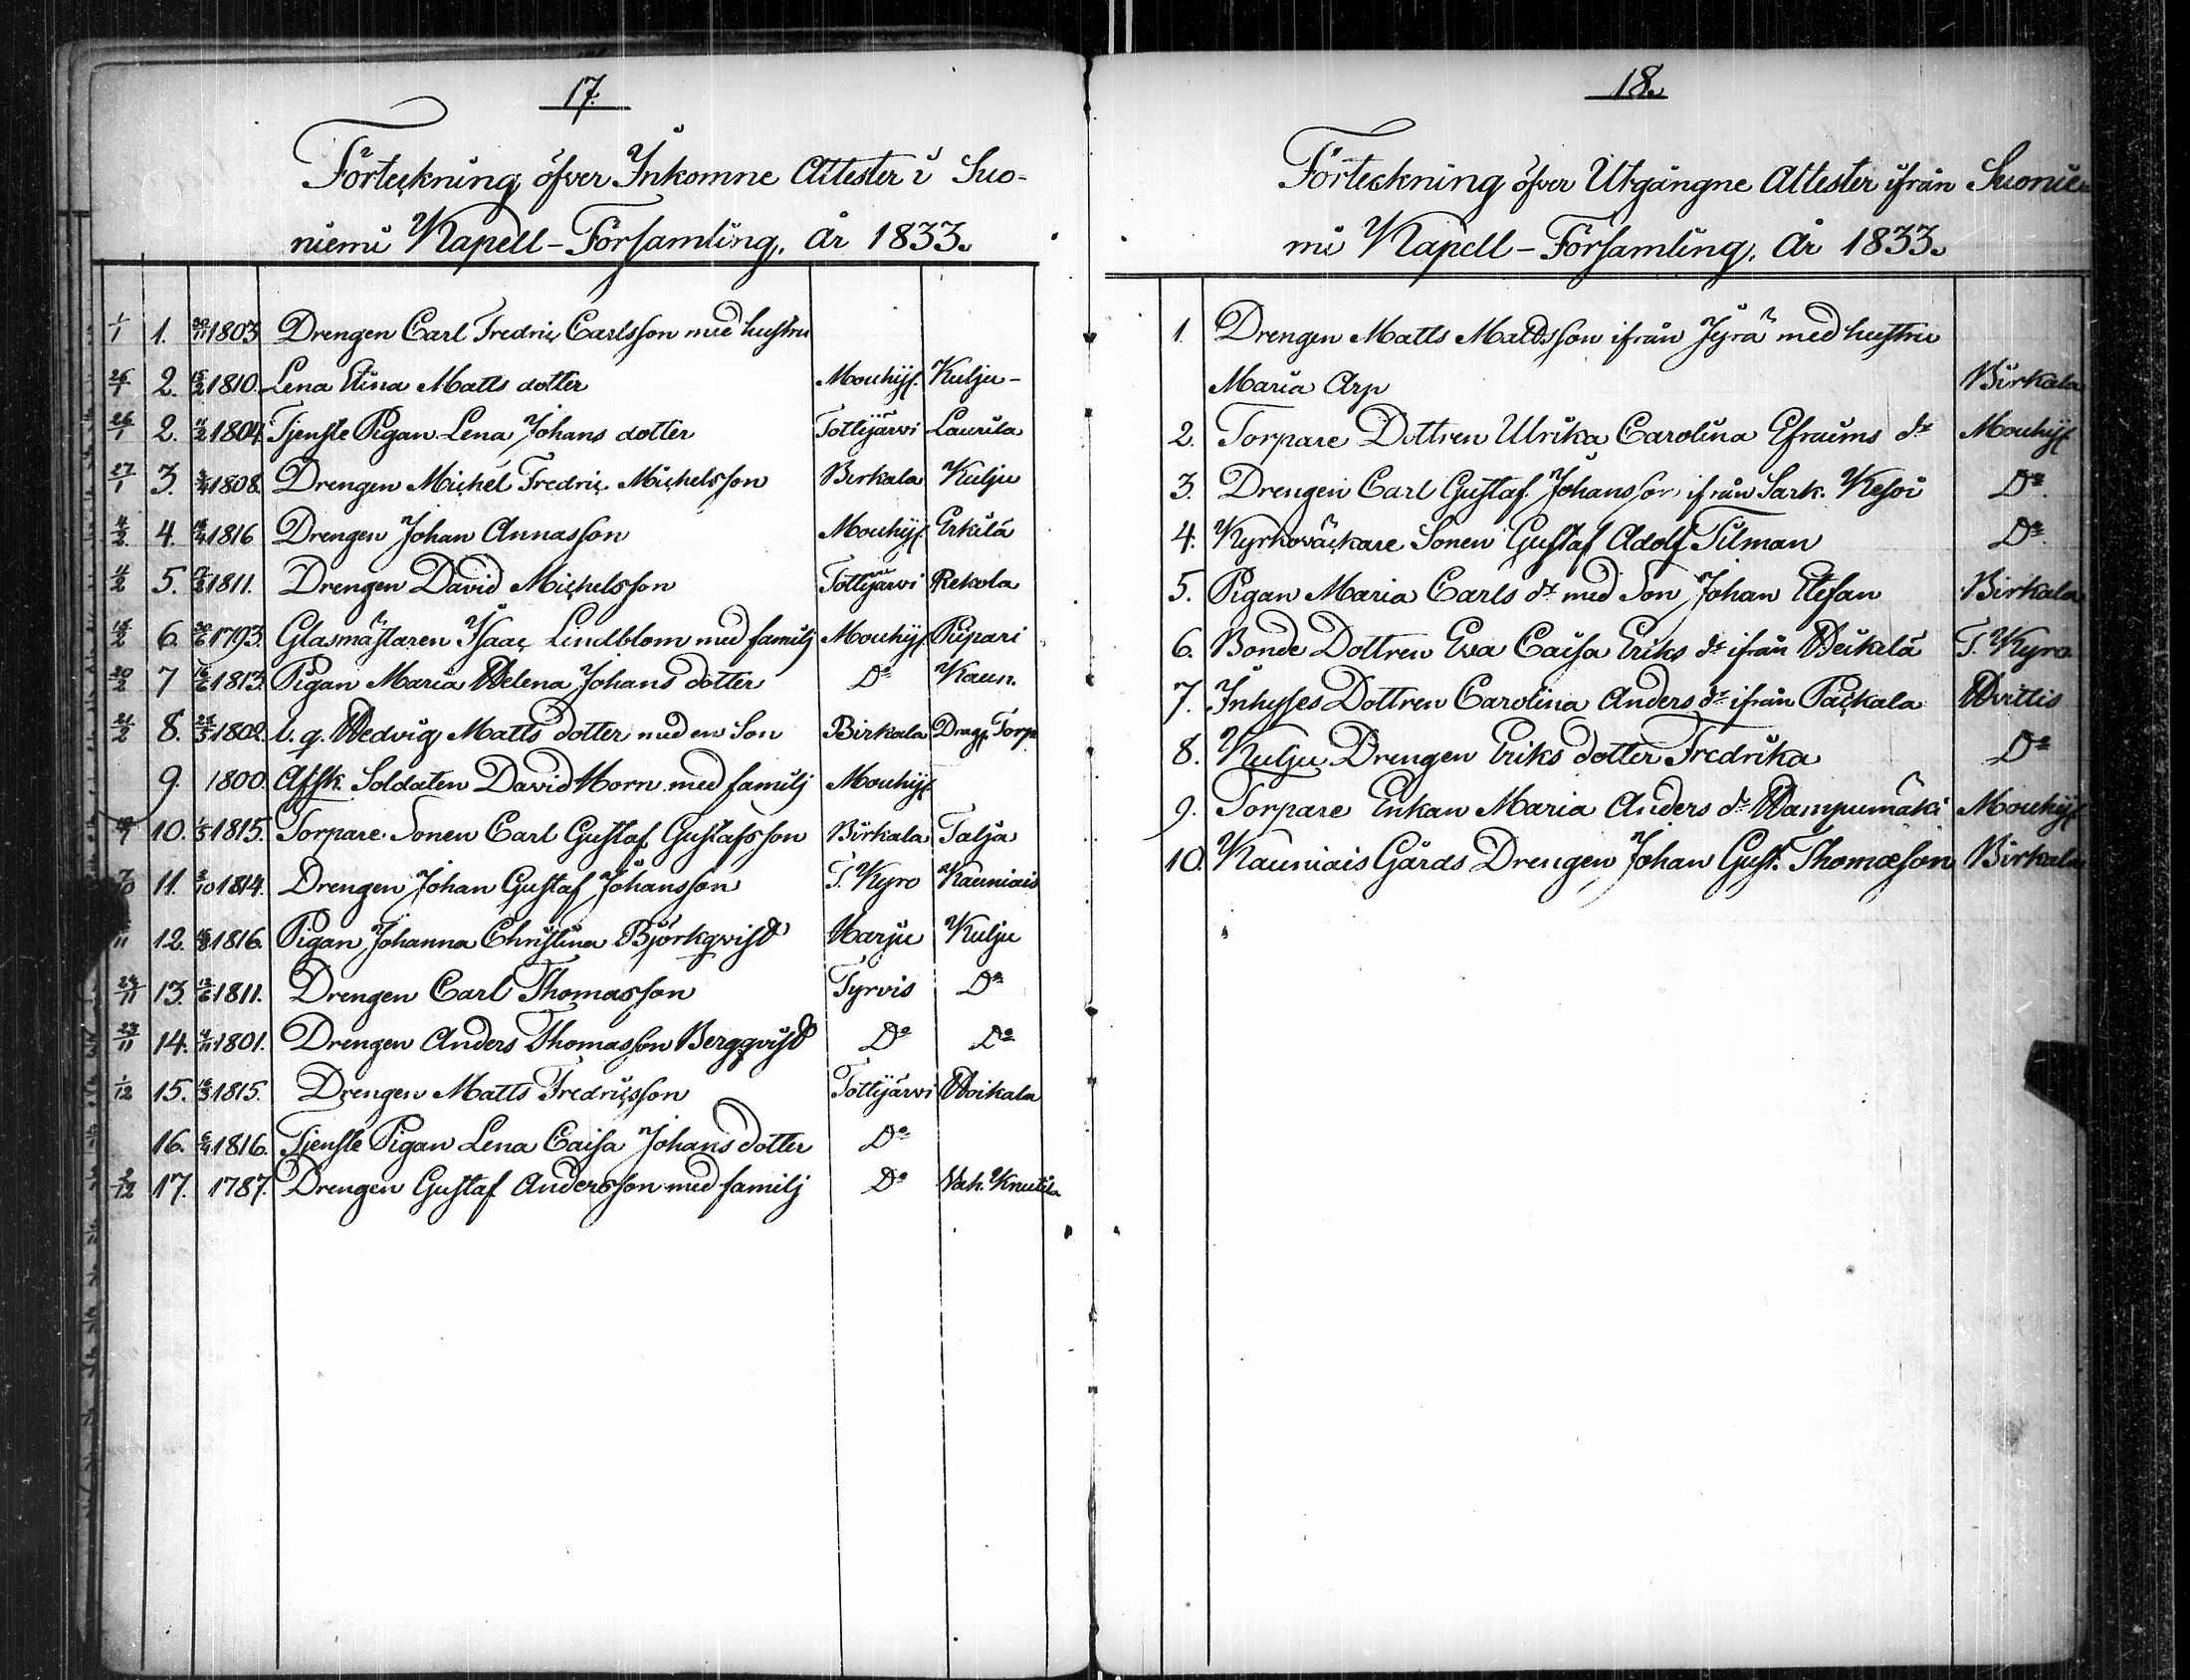 17.
Förteckning öfver Inkomne Attester i Suo-
niemi Kapell-Församling, År 1833.
1/1 1. 1803 Drengen Carl Fredric Carlsson med hustru
2. 1810. Lena Stina Matts dotter Mouhijf. Kulju-
26/1 2. 1804. Tjenste Pigan Lena Johans dotter Tottijärwi Laurila
27/1 3. 1808. Drengen Michel Fredric Michelsson Birkala Kulju
4/2 4. 1816 Drengen Johan Annasson Mouhijf. Erkilä
4/2 5. 1811. Drengen David Michelsson Tottijärwi Rekola
6. 1793. Glasmästaren Isaac Lindblom med familj Mouhijf. Pipari
20/2 7 1813. Pigan Maria Helena Johans dotter Do Kaun.
21/2 8. 1802. b. q. Hedvig Matts dotter med en Son Birkala Drag. Torp
9. 1800. Afsk. Soldaten David Horn med familj Mouhijf
10. 1/5 1815. Torpare Sonen Carl Gustaf Gustafsson Birkala Talja
7/10 11. 1814. Drengen Johan Gustaf Johansson T. Kyro Kauniais
12. 1816. Pigan Johanna Christina Björkqvist Harju Kulju
24/11 13. 1811. Drengen Carl Thomasson Tyrvis Do
27/11 14. 1801. Drengen Anders Thomasson Bergqvist Do Do
1/12 15. 1815. Drengen Matts Fredricsson Tottijärwi Hoikala
16. 1816. Tjenste Pigan Lena Caisa Johans dotter Do
2/12 17. 1787. Drengen Gustaf Andersson med familj Do Vah. Knutila
18.
Förteckning öfver Utgångne Attester ifrån Suonie
mi Kapell-Församling, År 1833.
1. Drengen Matts Mattsson ifrån Jyrä med hustru
Maria Arp Birkala
2. Torpare Dottren Ulrika Carolina Efraims dr Mouhijf
3. Drengen Carl Gustaf Johansson ifrån Sark. Kesoi Do
4. Kyrkoväckare Sonen Gustaf Adolf Tilman Do
5. Pigan Maria Carls dr med Son Johan Stefan Birkala
6. Bonde Dottren Ewa Caisa Eriks dr ifrån Heikilä T. Kyro
7. Inhyses Dottren Carolina Anders dr ifrån Packala Hvitis
8. Kulju Drengen Eriks dotter Fredrika Do
9. Torpare Enkan Maria Anders dr Hampumäki Mouhijf
10. Kauniais Gårds Drengen Johan Gust. Thomæson Birkala